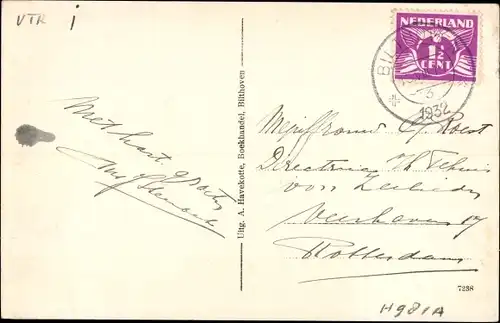 VTR i
NEDERLAND
1½
CENT
BIL
1932
Met hart. groeten
Uitg. A. Havekotte, Boekhandel, Bilthoven
Mejuffrouw C. Roest
Directrice Tehuis
voor Zeelieden
Veerhaven 17
Rotterdam
7238
H981A